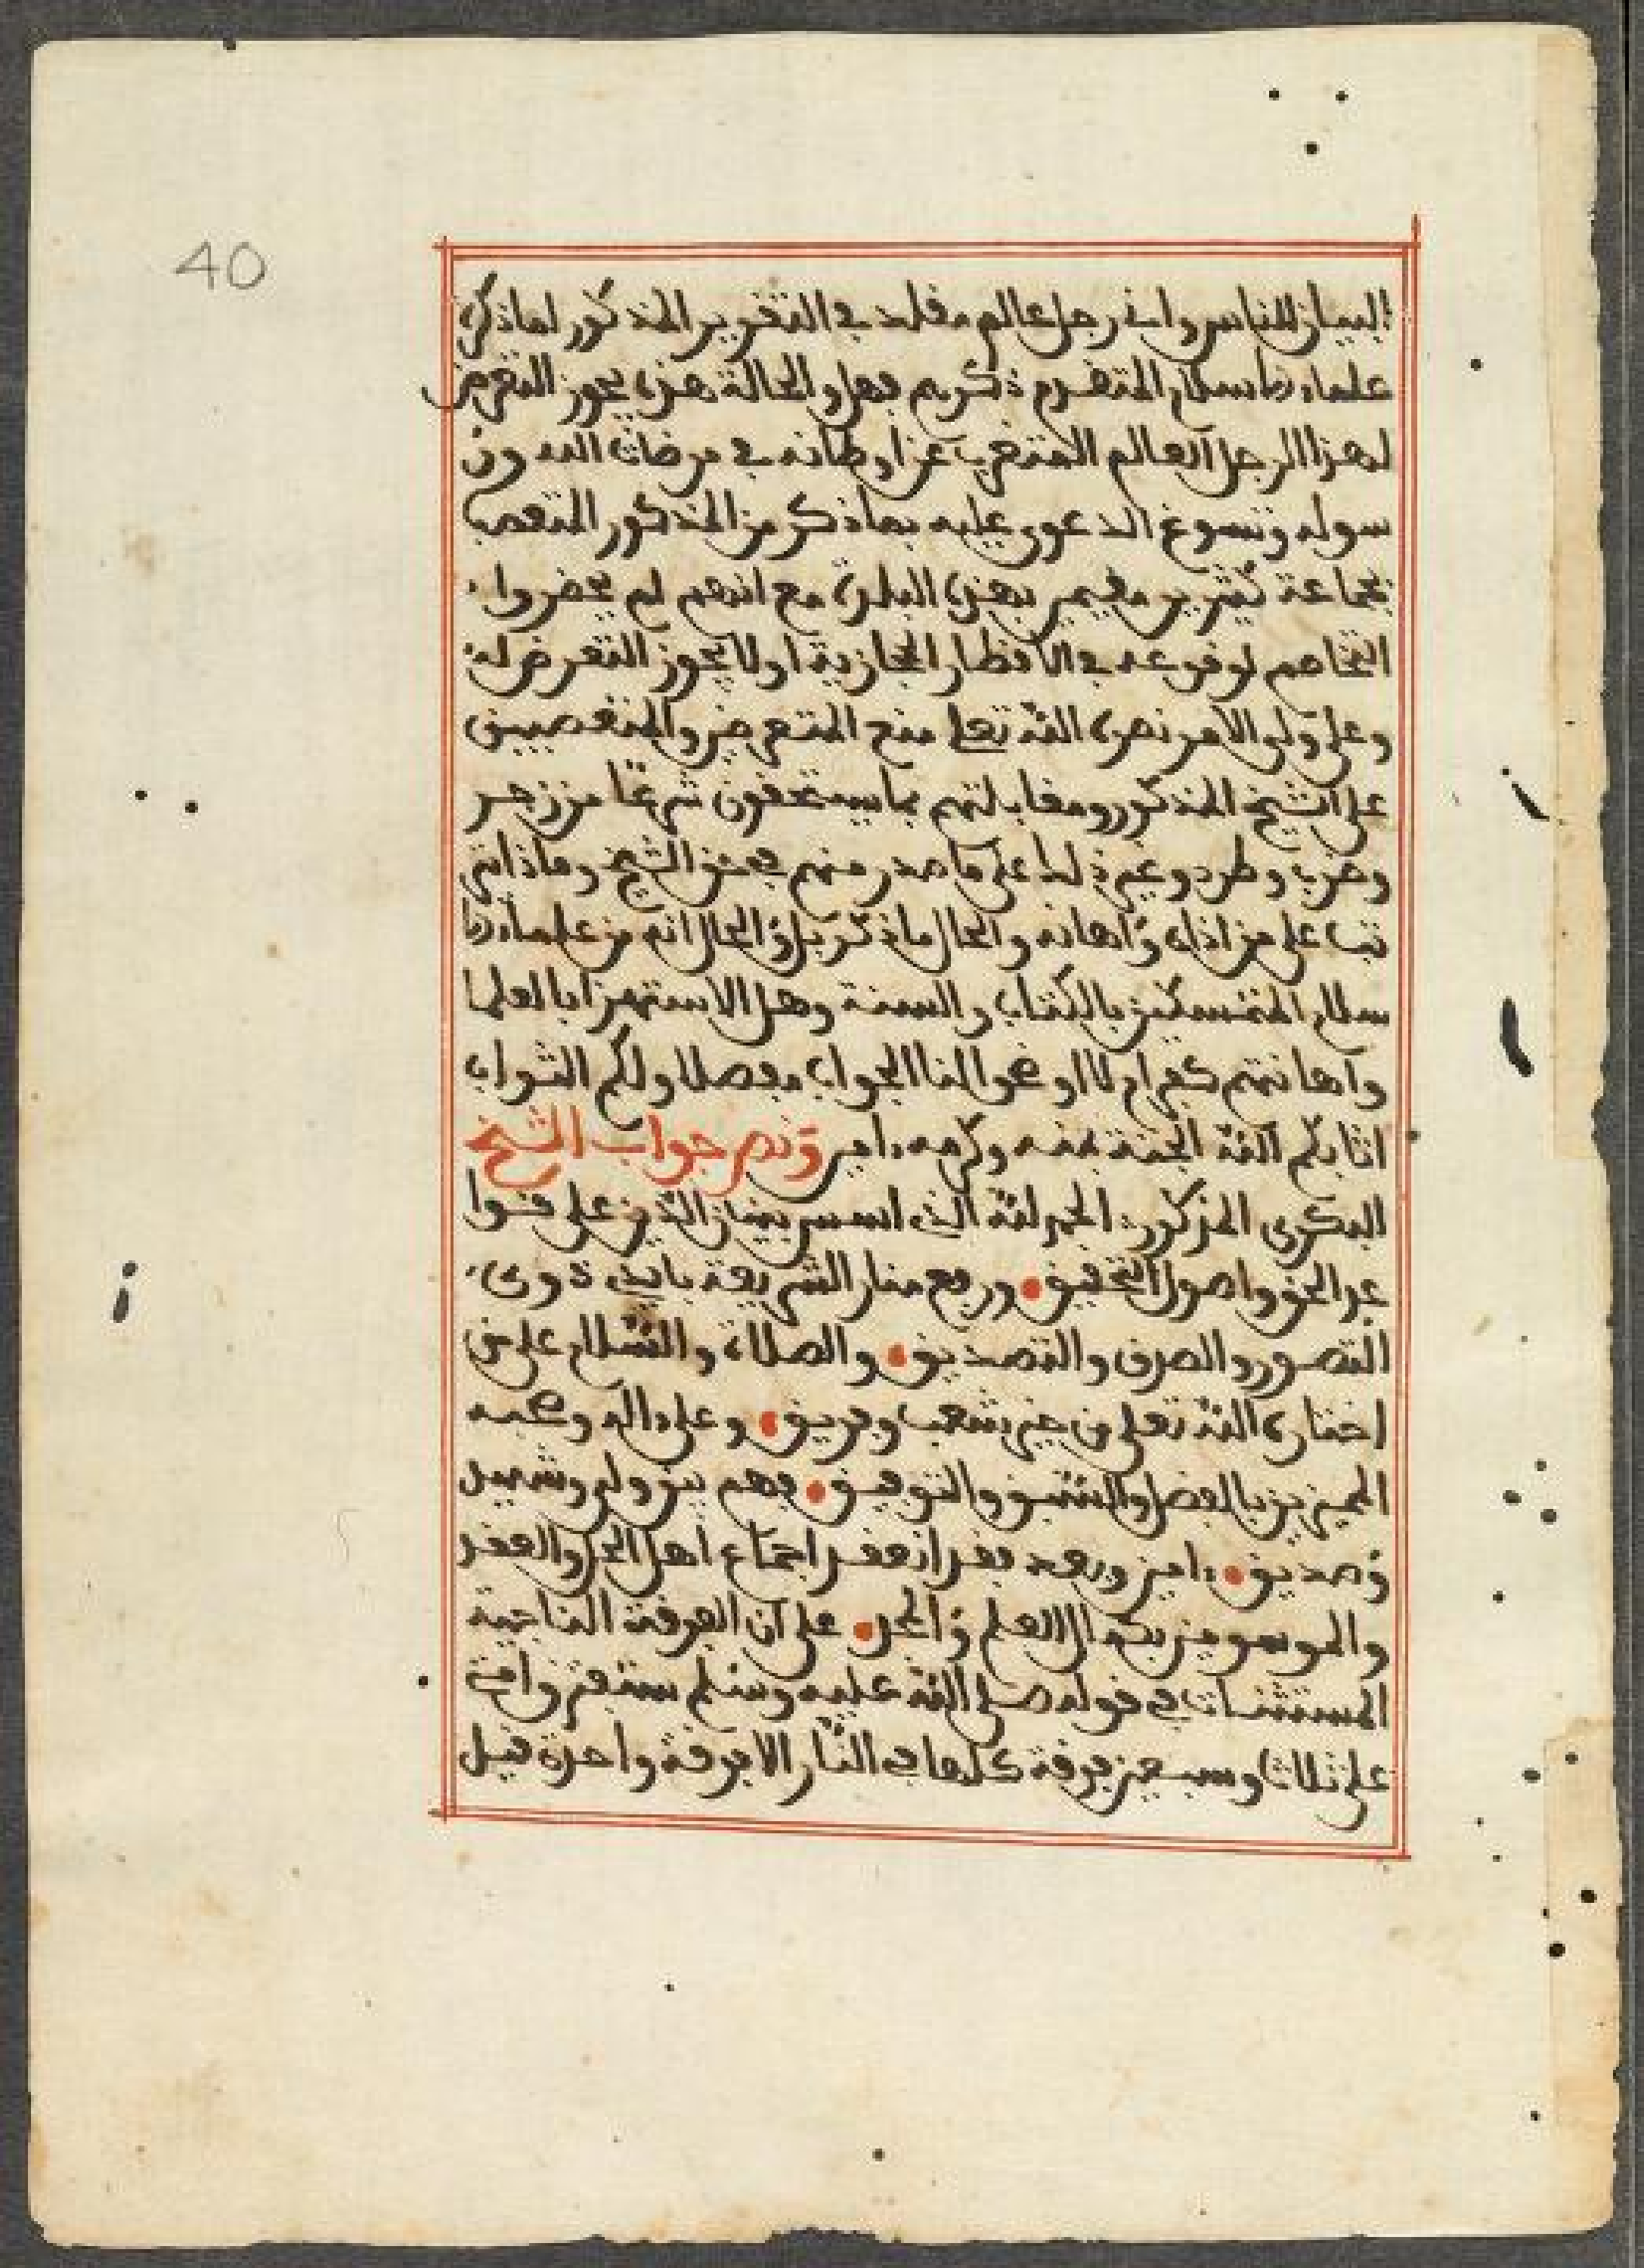 40
البيان للناس واني رجل عالم مقلد في التقرير المذكور لما ذكره
علماء الاسلام المتقدم ذكرهم فهل والحالة هذه يجوز التعرض
لهذا الرجل العالم المتغرب عن اوطانه في مرضات الله ورر
سوله وتسوغ الدعوى عليه بما ذكر من المذكور المتعصب
بجماعة كثيرين مقيمين بهذه البلدة مع انهم لم يحضروا
التخاصم لوقوعه في الاقطار الحجازية او لا يجوز التعرض له
وعلى ولي الامر نصره الله تعلى منع المتعرض والمتعصبين
على الشيخ المذكور ومقابلتهم بما يستحقون شرعا من زجر
وضرب وطرد وغير ذلك على ما صدر منهم في حق الشيخ وماذا يتر
تب على من اذاه واهانه والحال ما ذكر بل والحال انه من علماء الا
سلام المتمسكين بالكتاب والسنة وهل الاستهزا بالعلما
واهانتهم كفر ام لا اوضحوا لنا الجواب مفصلا ولكم الثواب
اثابكم الله الجنة بمنه وكرمه ءامين ونص جواب الشيخ
البكري المذكور الحمد لله الذي اسس بنيان الدين على قوا
عد الحق واصول التحقيق ورفع منار الشريعة بايدي ذوي
التصور والصدق والتصديق والصلاة والسلام على من
اختاره الله تعلى من خير شعب وفريق وعلى ءاله وصحبه
المميزين بالفضل والسبق والتوفيق فهم بين ولي وشهيد
وصديق ءامين وبعد فقد انعقد اجماع اهل الحل والعقد
والموسومين بكمال العلم والمجد على ان الفرقة الناجية
المستثنات في قوله صلى الله عليه وسلم ستفترق امتي
على ثلاث وسبعين فرقة كلها في النار الا فرقة واحدة قيل